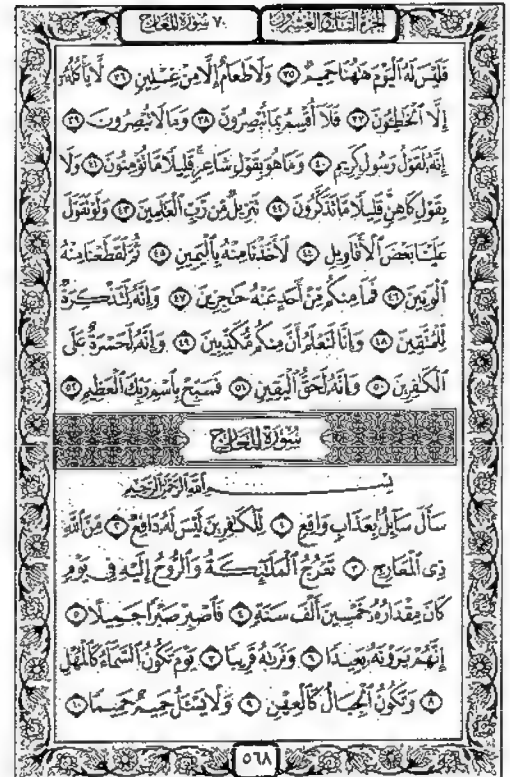 الجزء التاسع والعشرون
٧٠ سورة المعارج
فَلَيْسَ لَهُ ٱلْيَوْمَ هَٰهُنَا حَمِيمٌ ٣٥ وَلَا طَعَامٌ إِلَّا مِنْ غِسْلِينٍ ٣٦ لَّا يَأْكُلُهُۥٓ
إِلَّا ٱلْخَٰطِـُٔونَ ٣٧ فَلَآ أُقْسِمُ بِمَا تُبْصِرُونَ ٣٨ وَمَا لَا تُبْصِرُونَ ٣٩
إِنَّهُۥ لَقَوْلُ رَسُولٍ كَرِيمٍ ٤٠ وَمَا هُوَ بِقَوْلِ شَاعِرٍ ۚ قَلِيلًا مَّا تُؤْمِنُونَ ٤١ وَلَا
بِقَوْلِ كَاهِنٍ ۚ قَلِيلًا مَّا تَذَكَّرُونَ ٤٢ تَنزِيلٌ مِّن رَّبِّ ٱلْعَٰلَمِينَ ٤٣ وَلَوْ تَقَوَّلَ
عَلَيْنَا بَعْضَ ٱلْأَقَاوِيلِ ٤٤ لَأَخَذْنَا مِنْهُ بِٱلْيَمِينِ ٤٥ ثُمَّ لَقَطَعْنَا مِنْهُ
ٱلْوَتِينَ ٤٦ فَمَا مِنكُم مِّنْ أَحَدٍ عَنْهُ حَٰجِزِينَ ٤٧ وَإِنَّهُۥ لَتَذْكِرَةٌ
لِّلْمُتَّقِينَ ٤٨ وَإِنَّا لَنَعْلَمُ أَنَّ مِنكُم مُّكَذِّبِينَ ٤٩ وَإِنَّهُۥ لَحَسْرَةٌ عَلَى
ٱلْكَٰفِرِينَ ٥٠ وَإِنَّهُۥ لَحَقُّ ٱلْيَقِينِ ٥١ فَسَبِّحْ بِٱسْمِ رَبِّكَ ٱلْعَظِيمِ ٥٢
سورة المعارج
بِسْمِ ٱللَّهِ ٱلرَّحْمَٰنِ ٱلرَّحِيمِ
سَأَلَ سَآئِلٌۢ بِعَذَابٍ وَاقِعٍ ١ لِّلْكَٰفِرِينَ لَيْسَ لَهُۥ دَافِعٌ ٢ مِّنَ ٱللَّهِ
ذِى ٱلْمَعَارِجِ ٣ تَعْرُجُ ٱلْمَلَٰٓئِكَةُ وَٱلرُّوحُ إِلَيْهِ فِى يَوْمٍ
كَانَ مِقْدَارُهُۥ خَمْسِينَ أَلْفَ سَنَةٍ ٤ فَٱصْبِرْ صَبْرًا جَمِيلًا ٥
إِنَّهُمْ يَرَوْنَهُۥ بَعِيدًا ٦ وَنَرَىٰهُ قَرِيبًا ٧ يَوْمَ تَكُونُ ٱلسَّمَآءُ كَٱلْمُهْلِ
٨ وَتَكُونُ ٱلْجِبَالُ كَٱلْعِهْنِ ٩ وَلَا يَسْـَٔلُ حَمِيمٌ حَمِيمًا ١٠
٥٦٨